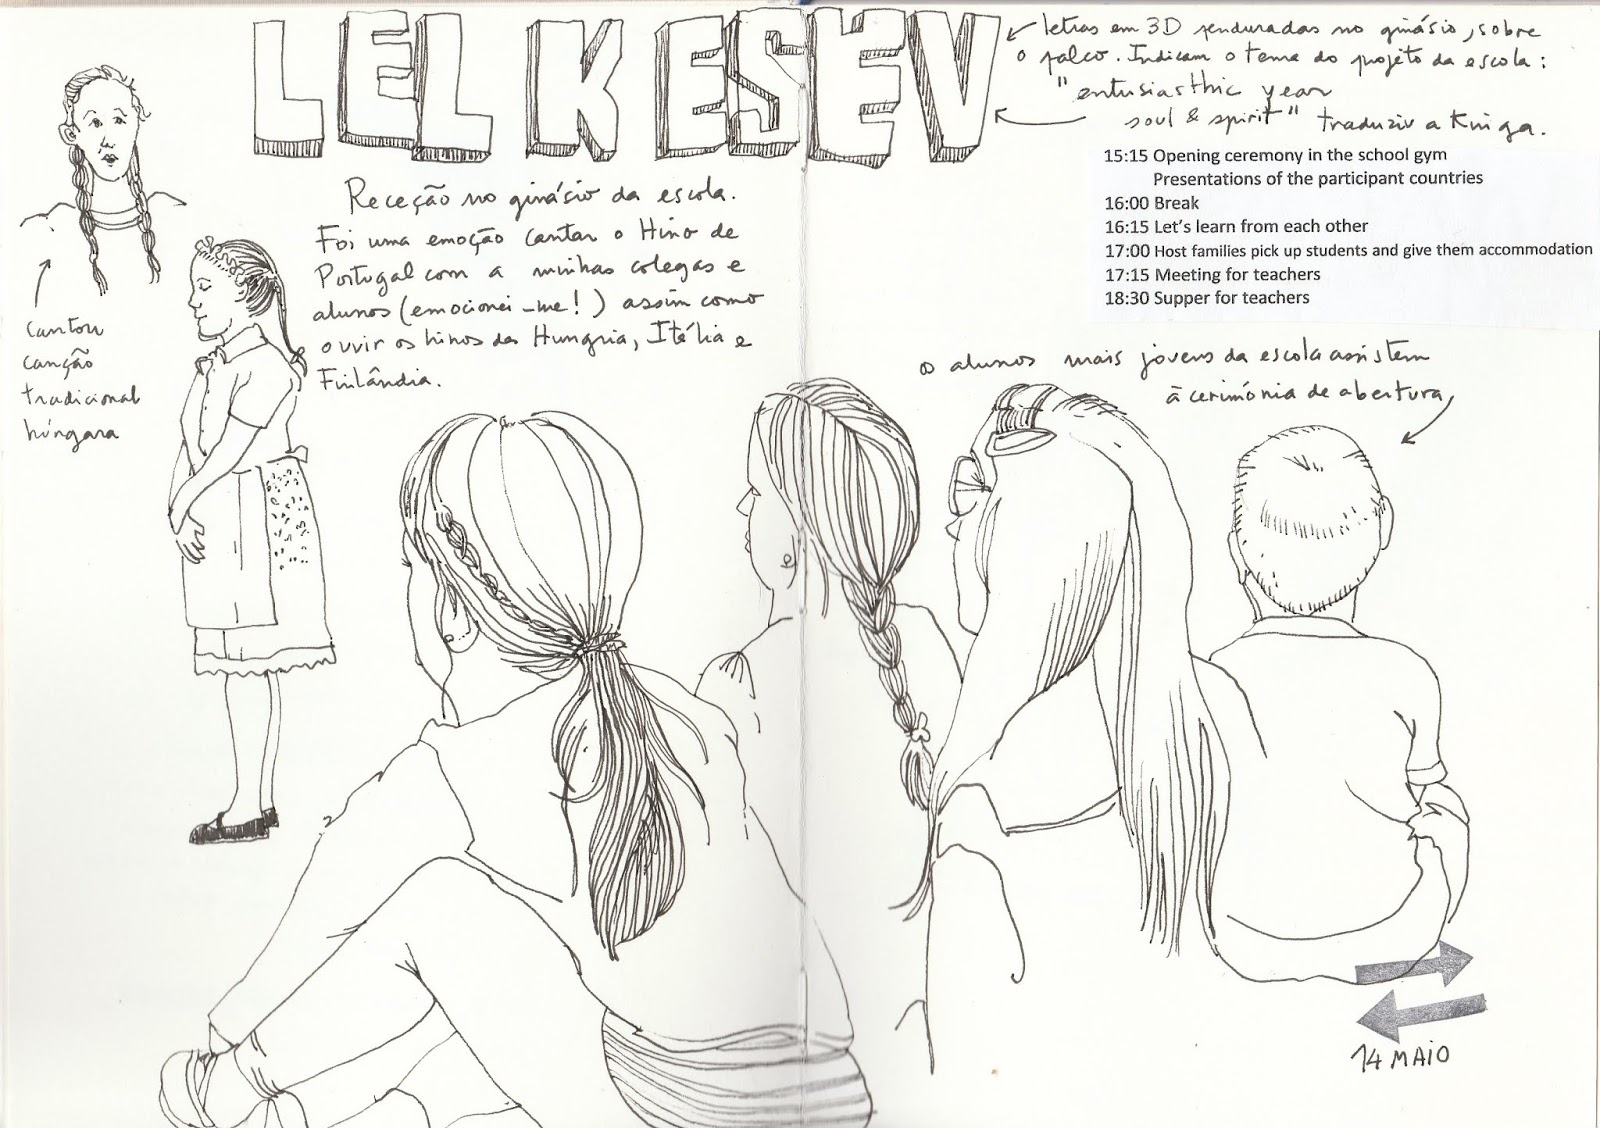 LELKESÉV
letras em 3D penduradas no ginásio, sobre
o palco. Indicam o tema do projeto da escola:
"entusiasthic year
soul & spirit" traduziu a Kinga.
15:15 Opening ceremony in the school gym
Presentations of the participant countries
16:00 Break
16:15 Let's learn from each other
17:00 Host families pick up students and give them accommodation
17:15 Meeting for teachers
18:30 Supper for teachers
Receção no ginásio da escola.
Foi uma emoção cantar o Hino de
Portugal com a minhas colegas e
alunos (emocionei-me!) assim como
ouvir os hinos da Hungria, Itália e
Finlândia.
Cantou
canção
tradicional
húngara
os alunos mais jovens da escola assistem
à cerimónia de abertura
14 MAIO